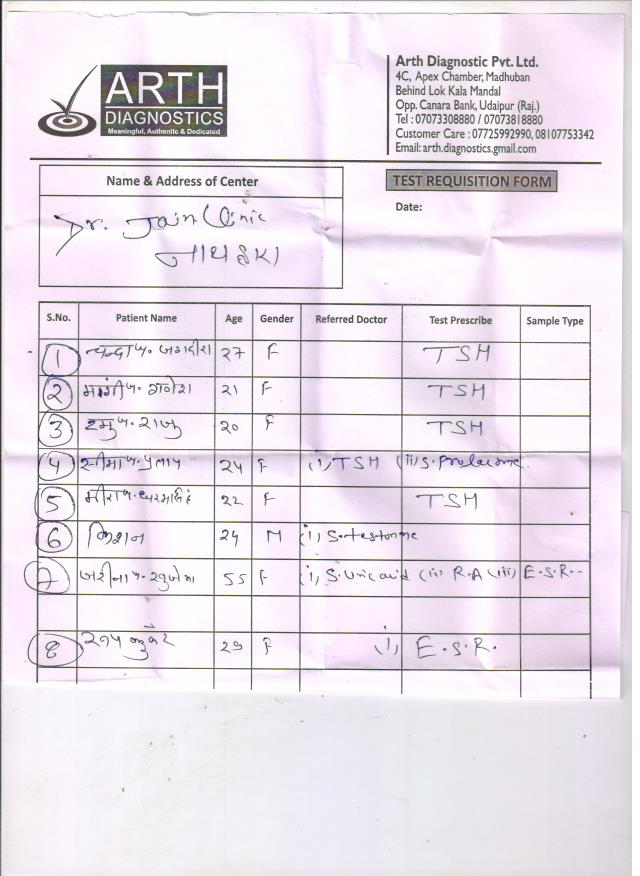 ARTH
DIAGNOSTICS
Meaningful, Authentic & Dedicated
Arth Diagnostic Pvt. Ltd.
4C, Apex Chamber, Madhuban
Behind Lok Kala Mandal
Opp. Canara Bank, Udaipur (Raj.)
Tel : 07073308880 / 07073818880
Customer Care : 07725992990, 08107753342
Email: arth.diagnostics.gmail.com
Name & Address of Center
TEST REQUISITION FORM
Date:
Dr. Jain Clinic
S.No. Patient Name Age Gender Referred Doctor Test Prescribe Sample Type
1 27 F TSH
2 21 F TSH
3 20 F TSH
4 24 F (i) TSH (ii) S.
5 22 F TSH
6 किशन 24 M (i) S.
7 55 F (i) S. Uric acid (ii) R.A (iii) E.S.R.
8 29 F (i) E.S.R.